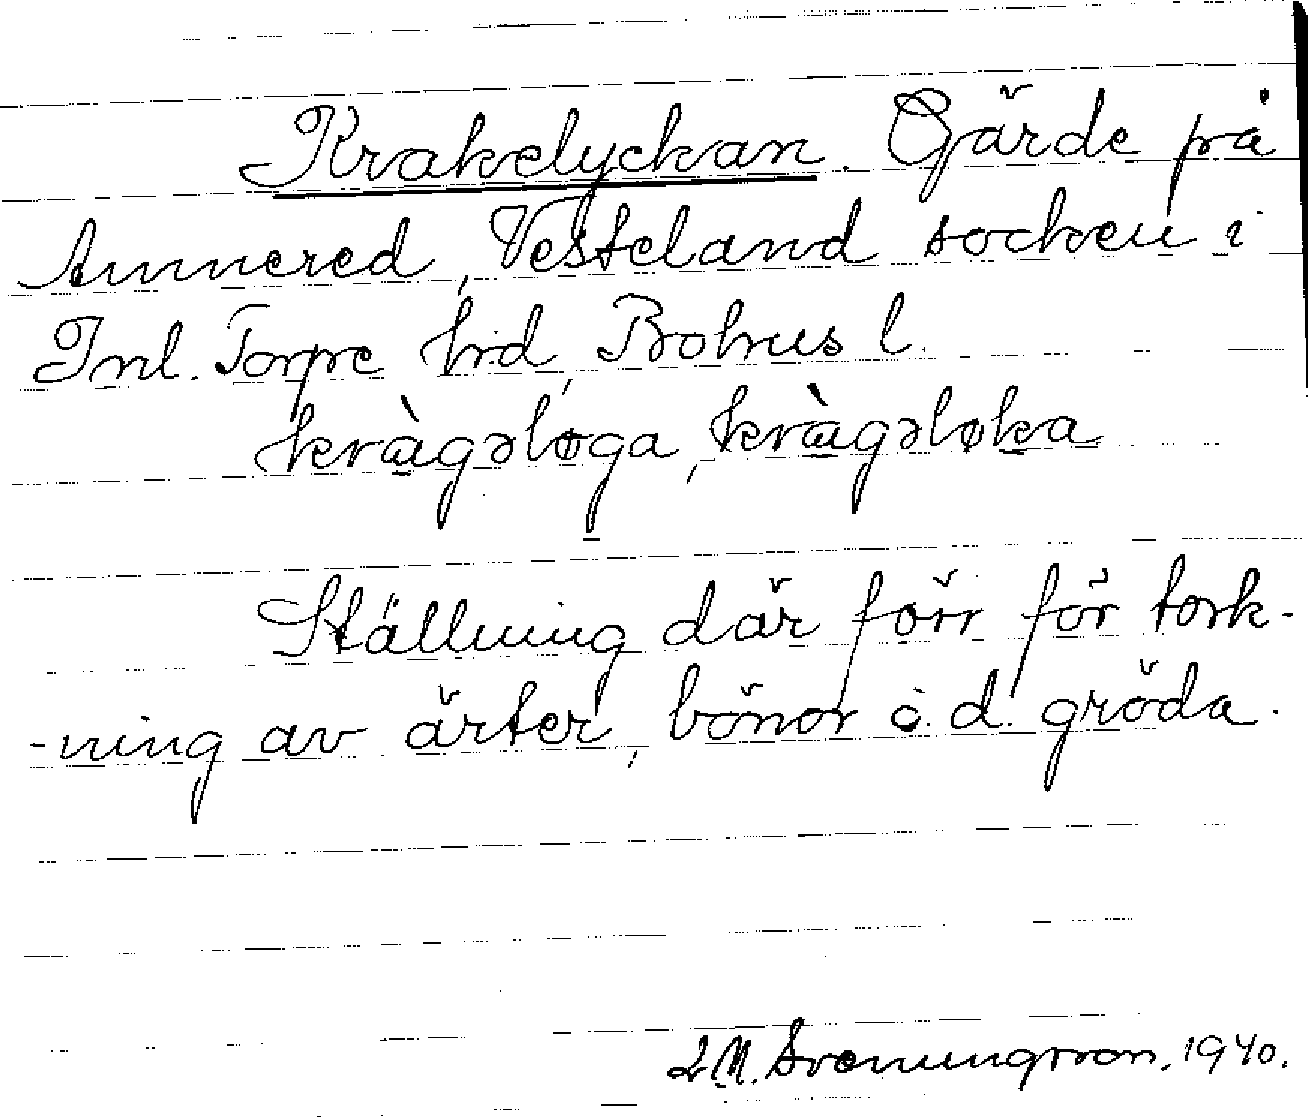 Krakelyckan. Gärde på
Annered, Vesteland socken i
Inl. Torpe hrd, Bohus l.
kràgəløga, kràgəløka
Ställning där förr för tork-
-ning av ärter, bönor o. d. gröda.
Svenungsson, 1940.